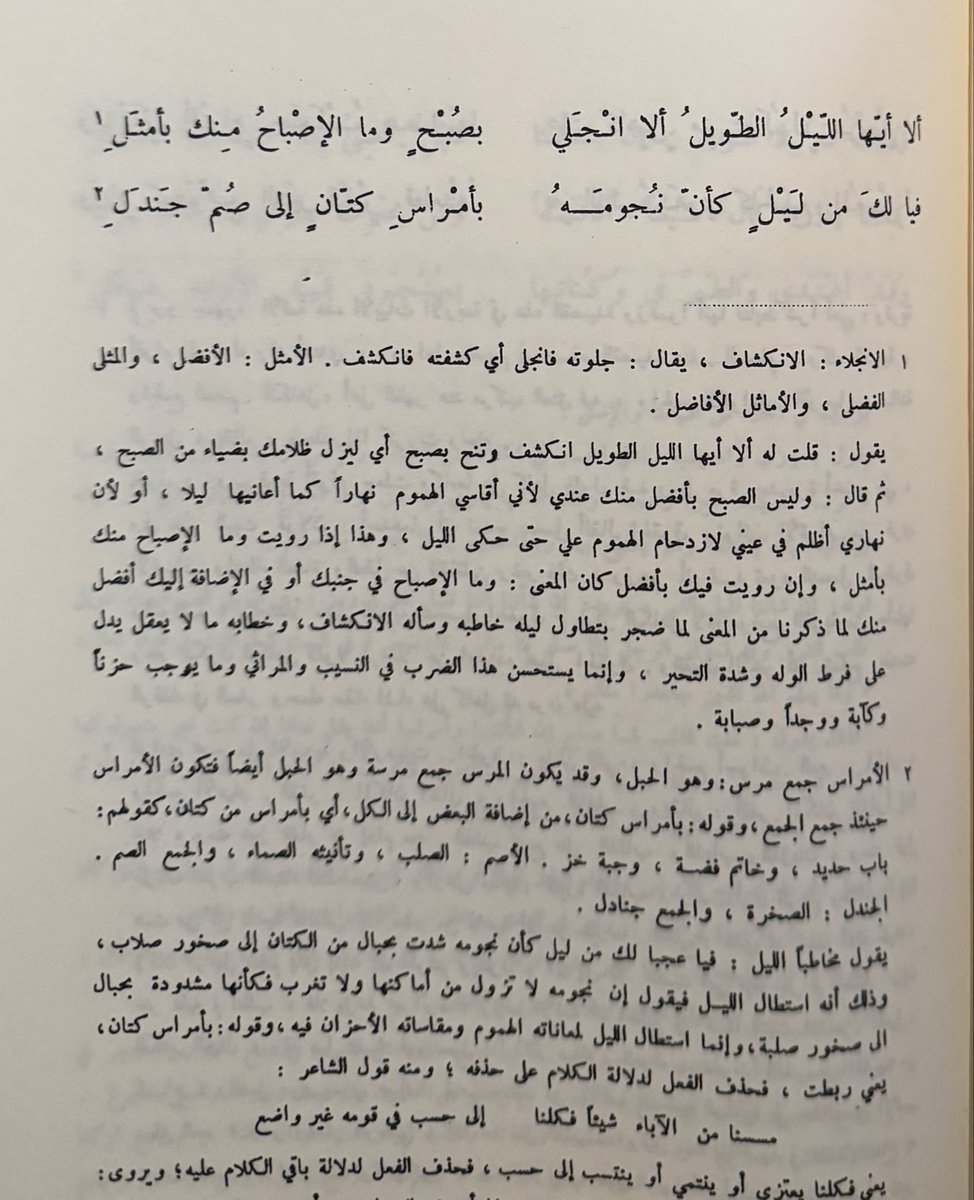 ألا أيّها اللّيْلُ الطّويلُ ألا انْجَلي بصُبْحٍ وما الإصْباحُ مِنك بأمثَلِ ١
فيا لكَ من لَيْلٍ كأنّ نُجومَهُ بأمْراسِ كتّانٍ إلى صُمّ جَندَلِ ٢
١ الانجلاء : الانكشاف ، يقال : جلوته فانجلى أي كشفته فانكشف . الأمثل : الأفضل ، والمثلى
الفضلى ، والأماثل الأفاضل .
يقول : قلت له ألا أيها الليل الطويل انكشف وتنح بصبح أي ليزل ظلامك بضياء من الصبح ،
ثم قال : وليس الصبح بأفضل منك عندي لأني أقاسي الهموم نهاراً كما أعانيها ليلا ، أو لأن
نهاري أظلم في عيني لازدحام الهموم علي حتى حكى الليل ، وهذا إذا رويت وما الإصباح منك
بأمثل ، وإن رويت فيك بأفضل كان المعنى : وما الإصباح في جنبك أو في الإضافة إليك أفضل
منك لما ذكرنا من المعنى لما ضجر بتطاول ليله خاطبه وسأله الانكشاف ، وخطابه ما لا يعقل يدل
على فرط الوله وشدة التحير ، وإنما يستحسن هذا الضرب في النسيب والمراثي وما يوجب حزناً
وكآبة ووجداً وصبابة .
٢ الأمراس جمع مرس : وهو الحبل ، وقد يكون المرس جمع مرسة وهو الحبل أيضاً فتكون الأمراس
حينئذ جمع الجمع ، وقوله : بأمراس كتان ، من إضافة البعض إلى الكل ، أي بأمراس من كتان ، كقولهم :
باب حديد ، وخاتم فضة ، وجبة خز . الأصم : الصلب ، وتأنيثه الصماء ، والجمع الصم .
الجندل : الصخرة ، والجمع جنادل .
يقول مخاطباً الليل : فيا عجبا لك من ليل كأن نجومه شدت بحبال من الكتان إلى صخور صلاب ،
وذلك أنه استطال الليل فيقول إن نجومه لا تزول من أماكنها ولا تغرب فكأنها مشدودة بحبال
الى صخور صلبة ، وإنما استطال الليل لمعاناته الهموم ومقاساته الأحزان فيه ، وقوله : بأمراس كتان ،
يعني ربطت ، فحذف الفعل لدلالة الكلام على حذفه ؛ ومنه قول الشاعر :
مسسنا من الآباء شيئاً فكلنا إلى حسب في قومه غير واضع
يعني فكلنا يعتزي أو ينتمي أو ينتسب إلى حسب ، فحذف الفعل لدلالة باقي الكلام عليه ؛ ويروى :